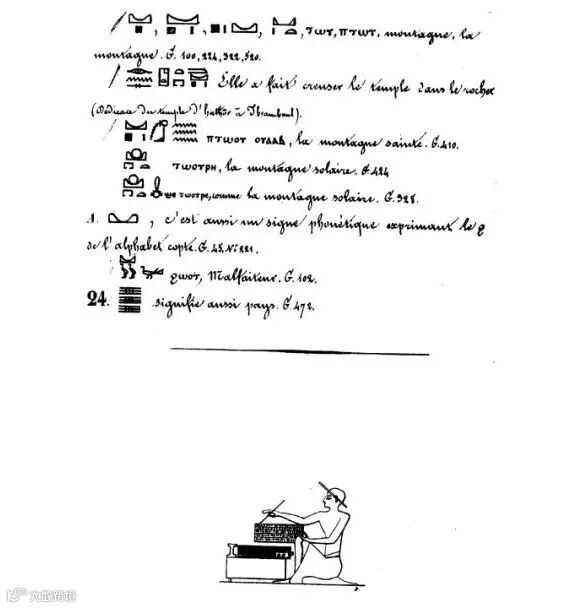 , ⲧⲱⲟⲩ, ⲡⲧⲱⲟⲩ, montagne, la
montagne. G. 100, 224, 322, 520.
Elle a fait creuser le temple dans le rocher
(Dédicace du temple d'hathôr à Ibsamboul).
ⲡⲧⲱⲟⲩ ⲟⲩⲁⲁⲃ, la montagne sainte. G. 410.
ⲧⲱⲟⲩⲣⲏ, la montagne solaire. G. 424
comme la montagne solaire. G. 328.
1. , c'est aussi un signe phonétique exprimant le ϩ
de l'alphabet copte. G. 45, N° 221.
ϩⲱⲟⲩ, Malfaiteur. G. 102.
24. signifie aussi pays. G. 472.
大欧览镜